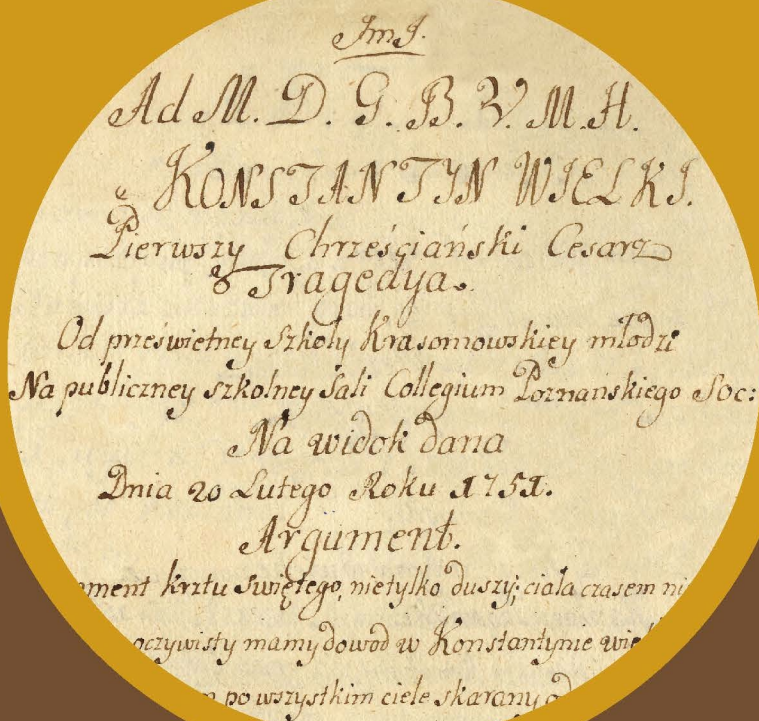 JmJ.
Ad M. D. G. B. V. M. H.
KONSTANTYN WIELKI.
Pierwszy Chrześciański Cesarz
Tragedya.
Od prześwietney szkoły Krasomowskiey młodzi
Na publiczney szkolney sali Collegium Poznańskiego Soc:
Na widok dana
Dnia 20 Lutego Roku 1751.
Argument.
ment krztu swiętego, nietylko duszy; ciała czasem ni
oczywisty mamy dowod w Konstantynie wiel
m po wszystkim ciele skarany od